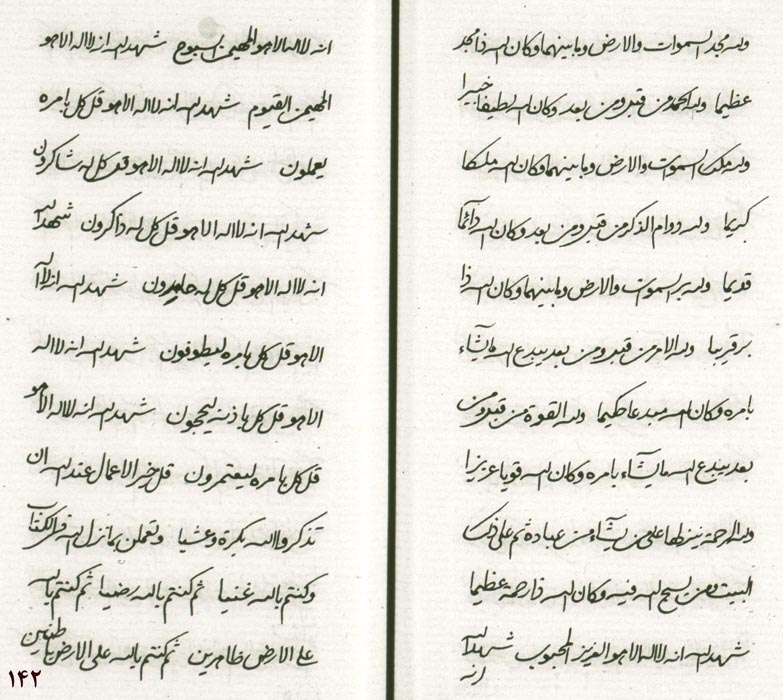 ولله مجد السموات والارض وما بينهما وكان الله ذا مجد
عظيما ولله الحمد من قبل ومن بعد وكان الله لطيفا خبيرا
ولله ملك السموات والارض وما بينهما وكان الله ملكا
كريما ولله دوام الذكر من قبل ومن بعد وكان الله دائما
قديما ولله بر السموات والارض وما بينهما وكان الله ذا
بر قريبا ولله الامر من قبل ومن بعد يبدع الله ما يشاء
بامره وكان الله مبدعا حكيما ولله القوة من قبل ومن
بعد يبدع الله ما يشاء بامره وكان الله قويا عزيزا
ولله الرحمة ينزلها على من يشاء من عباده ثم على ذلك
البيت من يسبح الله فيه وكان الله ذا رحمة عظيما
شهد الله انه لا اله الا هو العزيز المحبوب شهد الله
انه
انه لا اله الا هو المهيمن السبوح شهد الله انه لا اله الا هو
المهيمن القيوم شهد الله انه لا اله الا هو قل كل بامره
يعملون شهد الله انه لا اله الا هو قل كل له شاكرون
شهد الله انه لا اله الا هو قل كل له ذاكرون شهد الله
انه لا اله الا هو قل كل له حامدون شهد الله انه لا اله
الا هو قل كل بامره ليطوفون شهد الله انه لا اله
الا هو قل كل باذنه ليحجون شهد الله انه لا اله الا هو
قل كل بامره ليعتمرون قل خير الاعمال عند الله ان
تذكروا الله بكرة وعشيا وتعملن بما نزل الله في الكتاب
وكنتم بالله غنيا ثم كنتم بالله رضيا ثم كنتم بالله
على الارض ظاهرين ثم كنتم بالله على الارض
۱۴۲